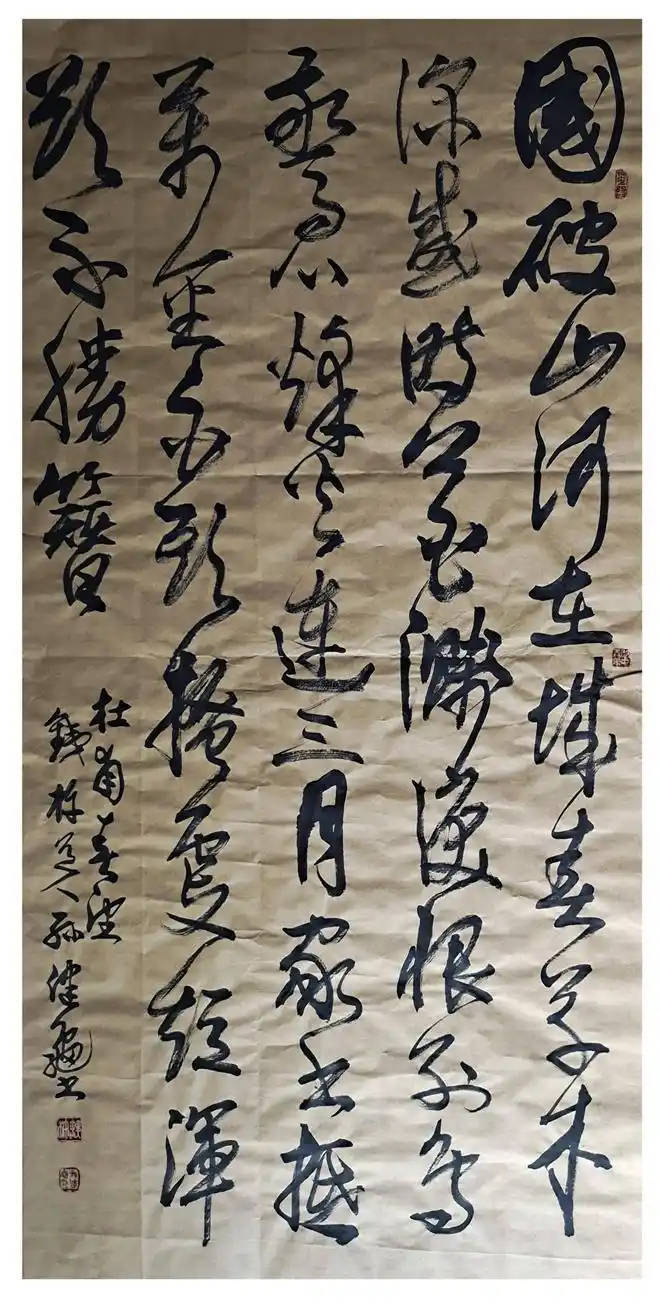 國破山河在城春草木
深感時花濺淚恨別鳥
驚心烽火連三月家書抵
萬金白頭搔更短渾
欲不勝簪
杜甫春望
道人孫健書